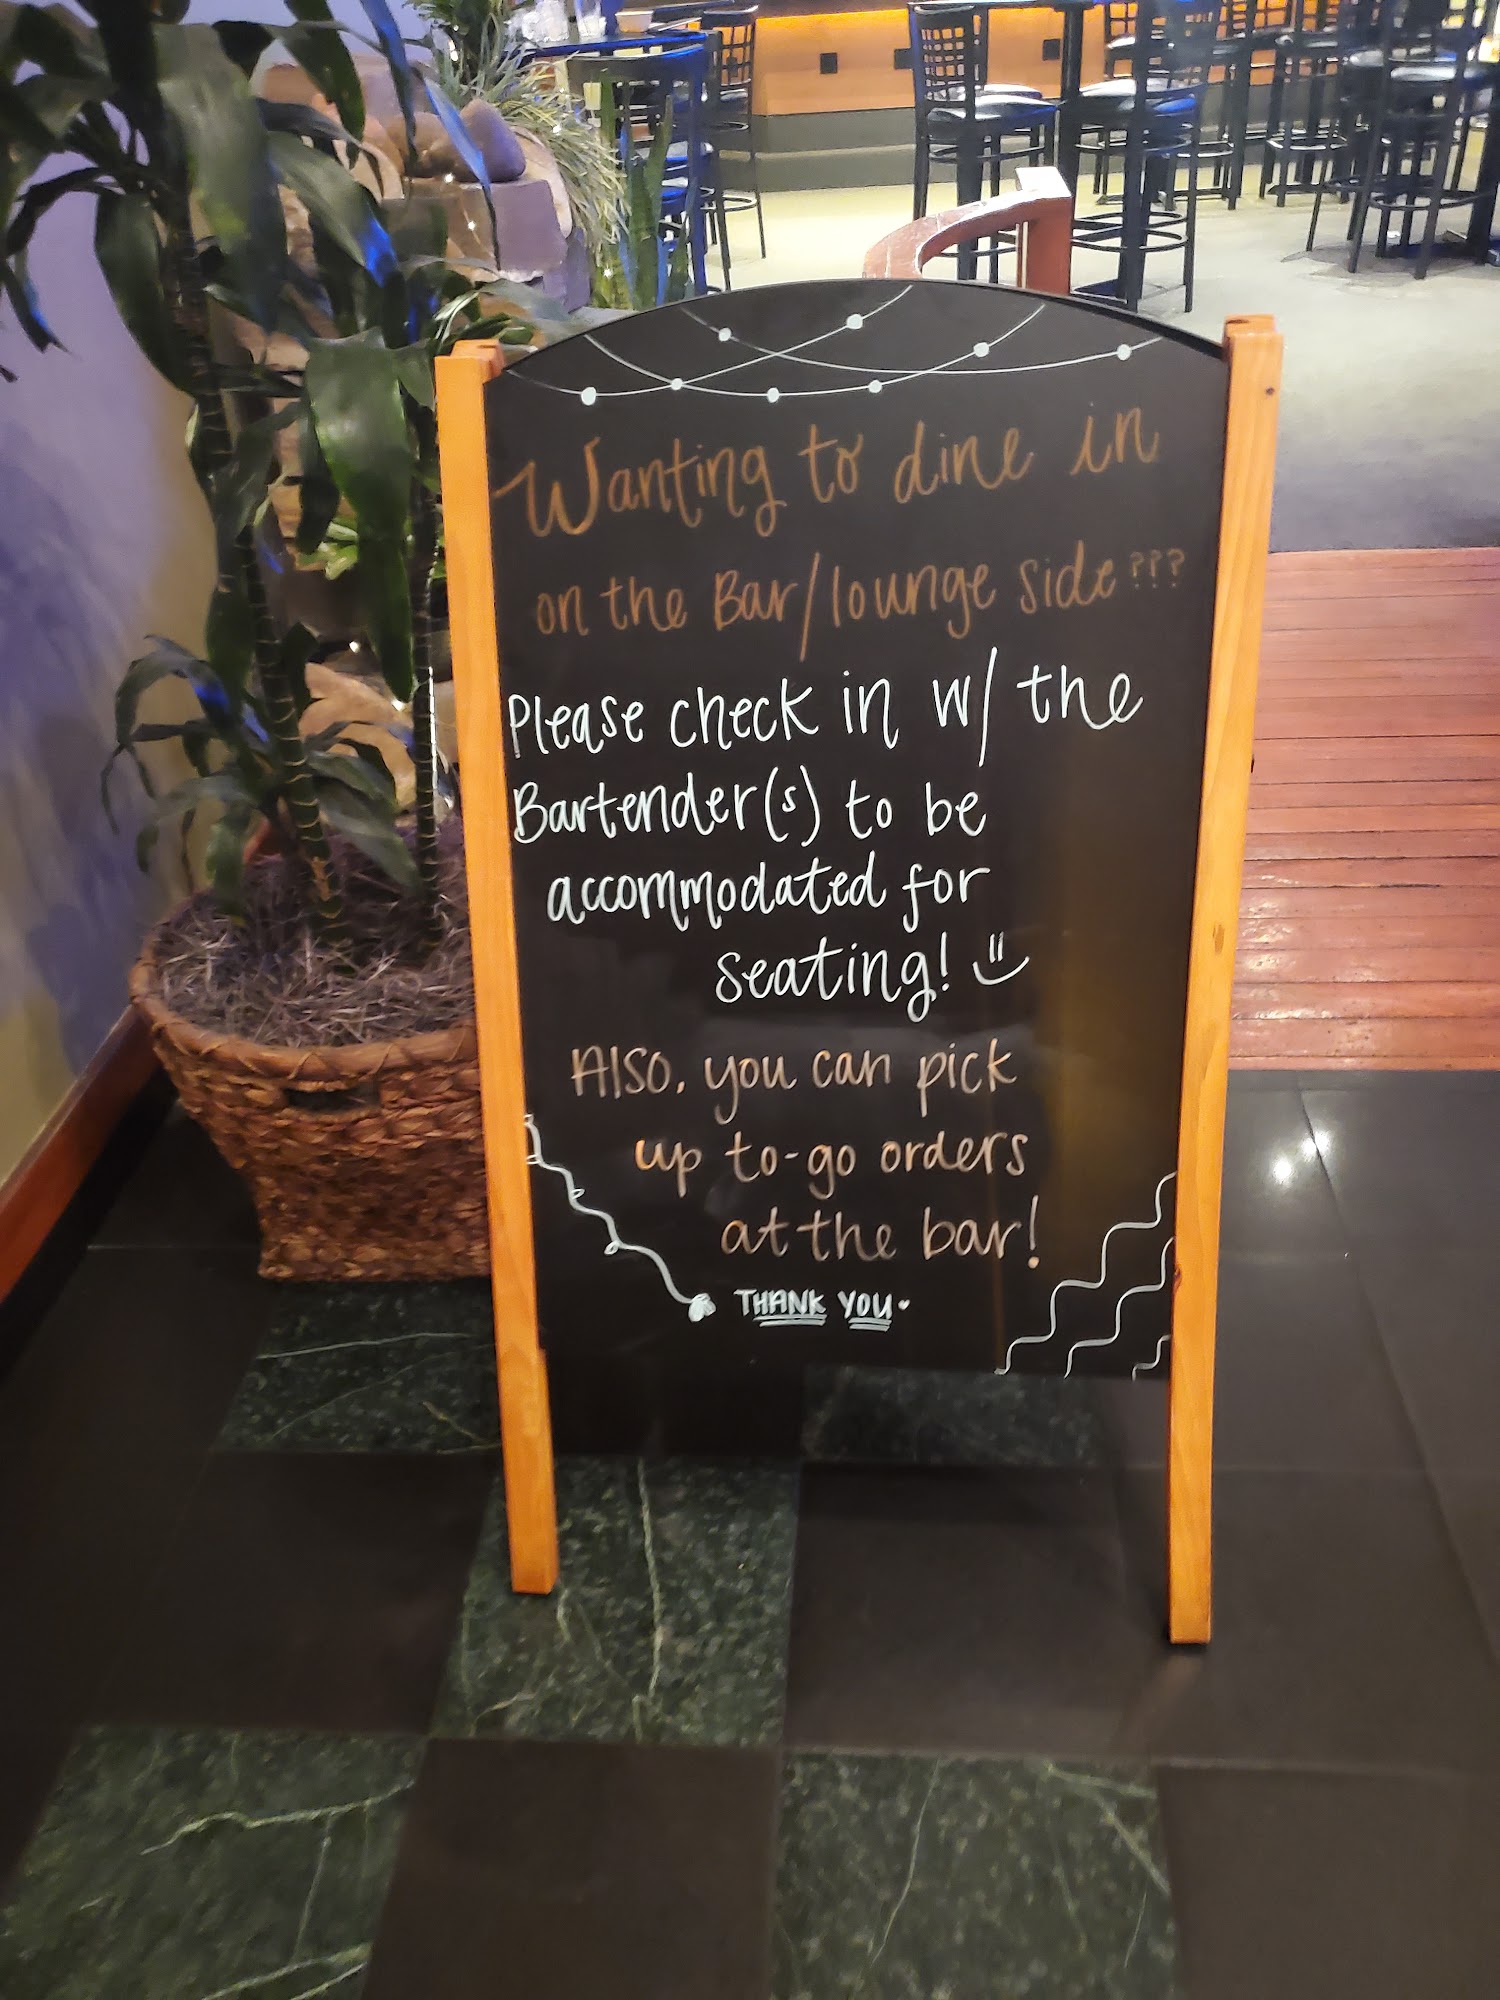 Wanting to dine in
on the Bar/lounge side???
Please check in w/ the
Bartender(s) to be
accommodated for
seating!
Also, you can pick
up to-go orders
at the bar!
THANK YOU